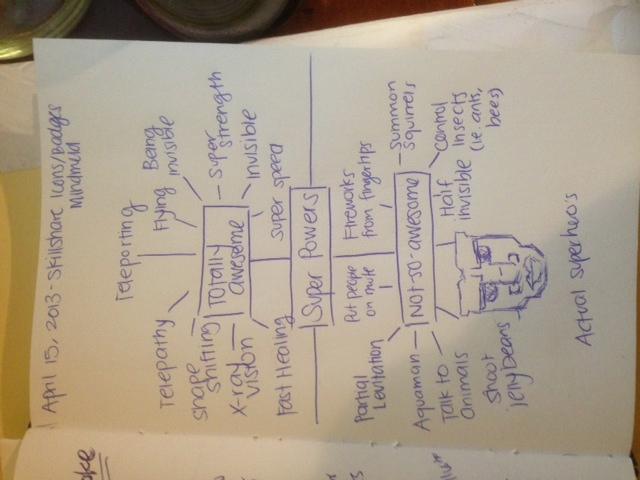 April 15, 2013 - Skillshare Icons/Badges
Mindmeld
Teleporting
Telepathy
Flying
Being
invisible
Shape
shifting
Totally
awesome
Super
strength
X-ray
vision
invisible
Fast Healing
Super speed
Super Powers
Put people
on mute
Fireworks
from fingertips
Partial
Levitation
Summon
squirrels
Aquaman
Not-so-awesome
Control
insects
(ie. ants,
bees)
Talk to
animals
Half
invisible
Shoot
jellybeans
Actual superhero's
oke